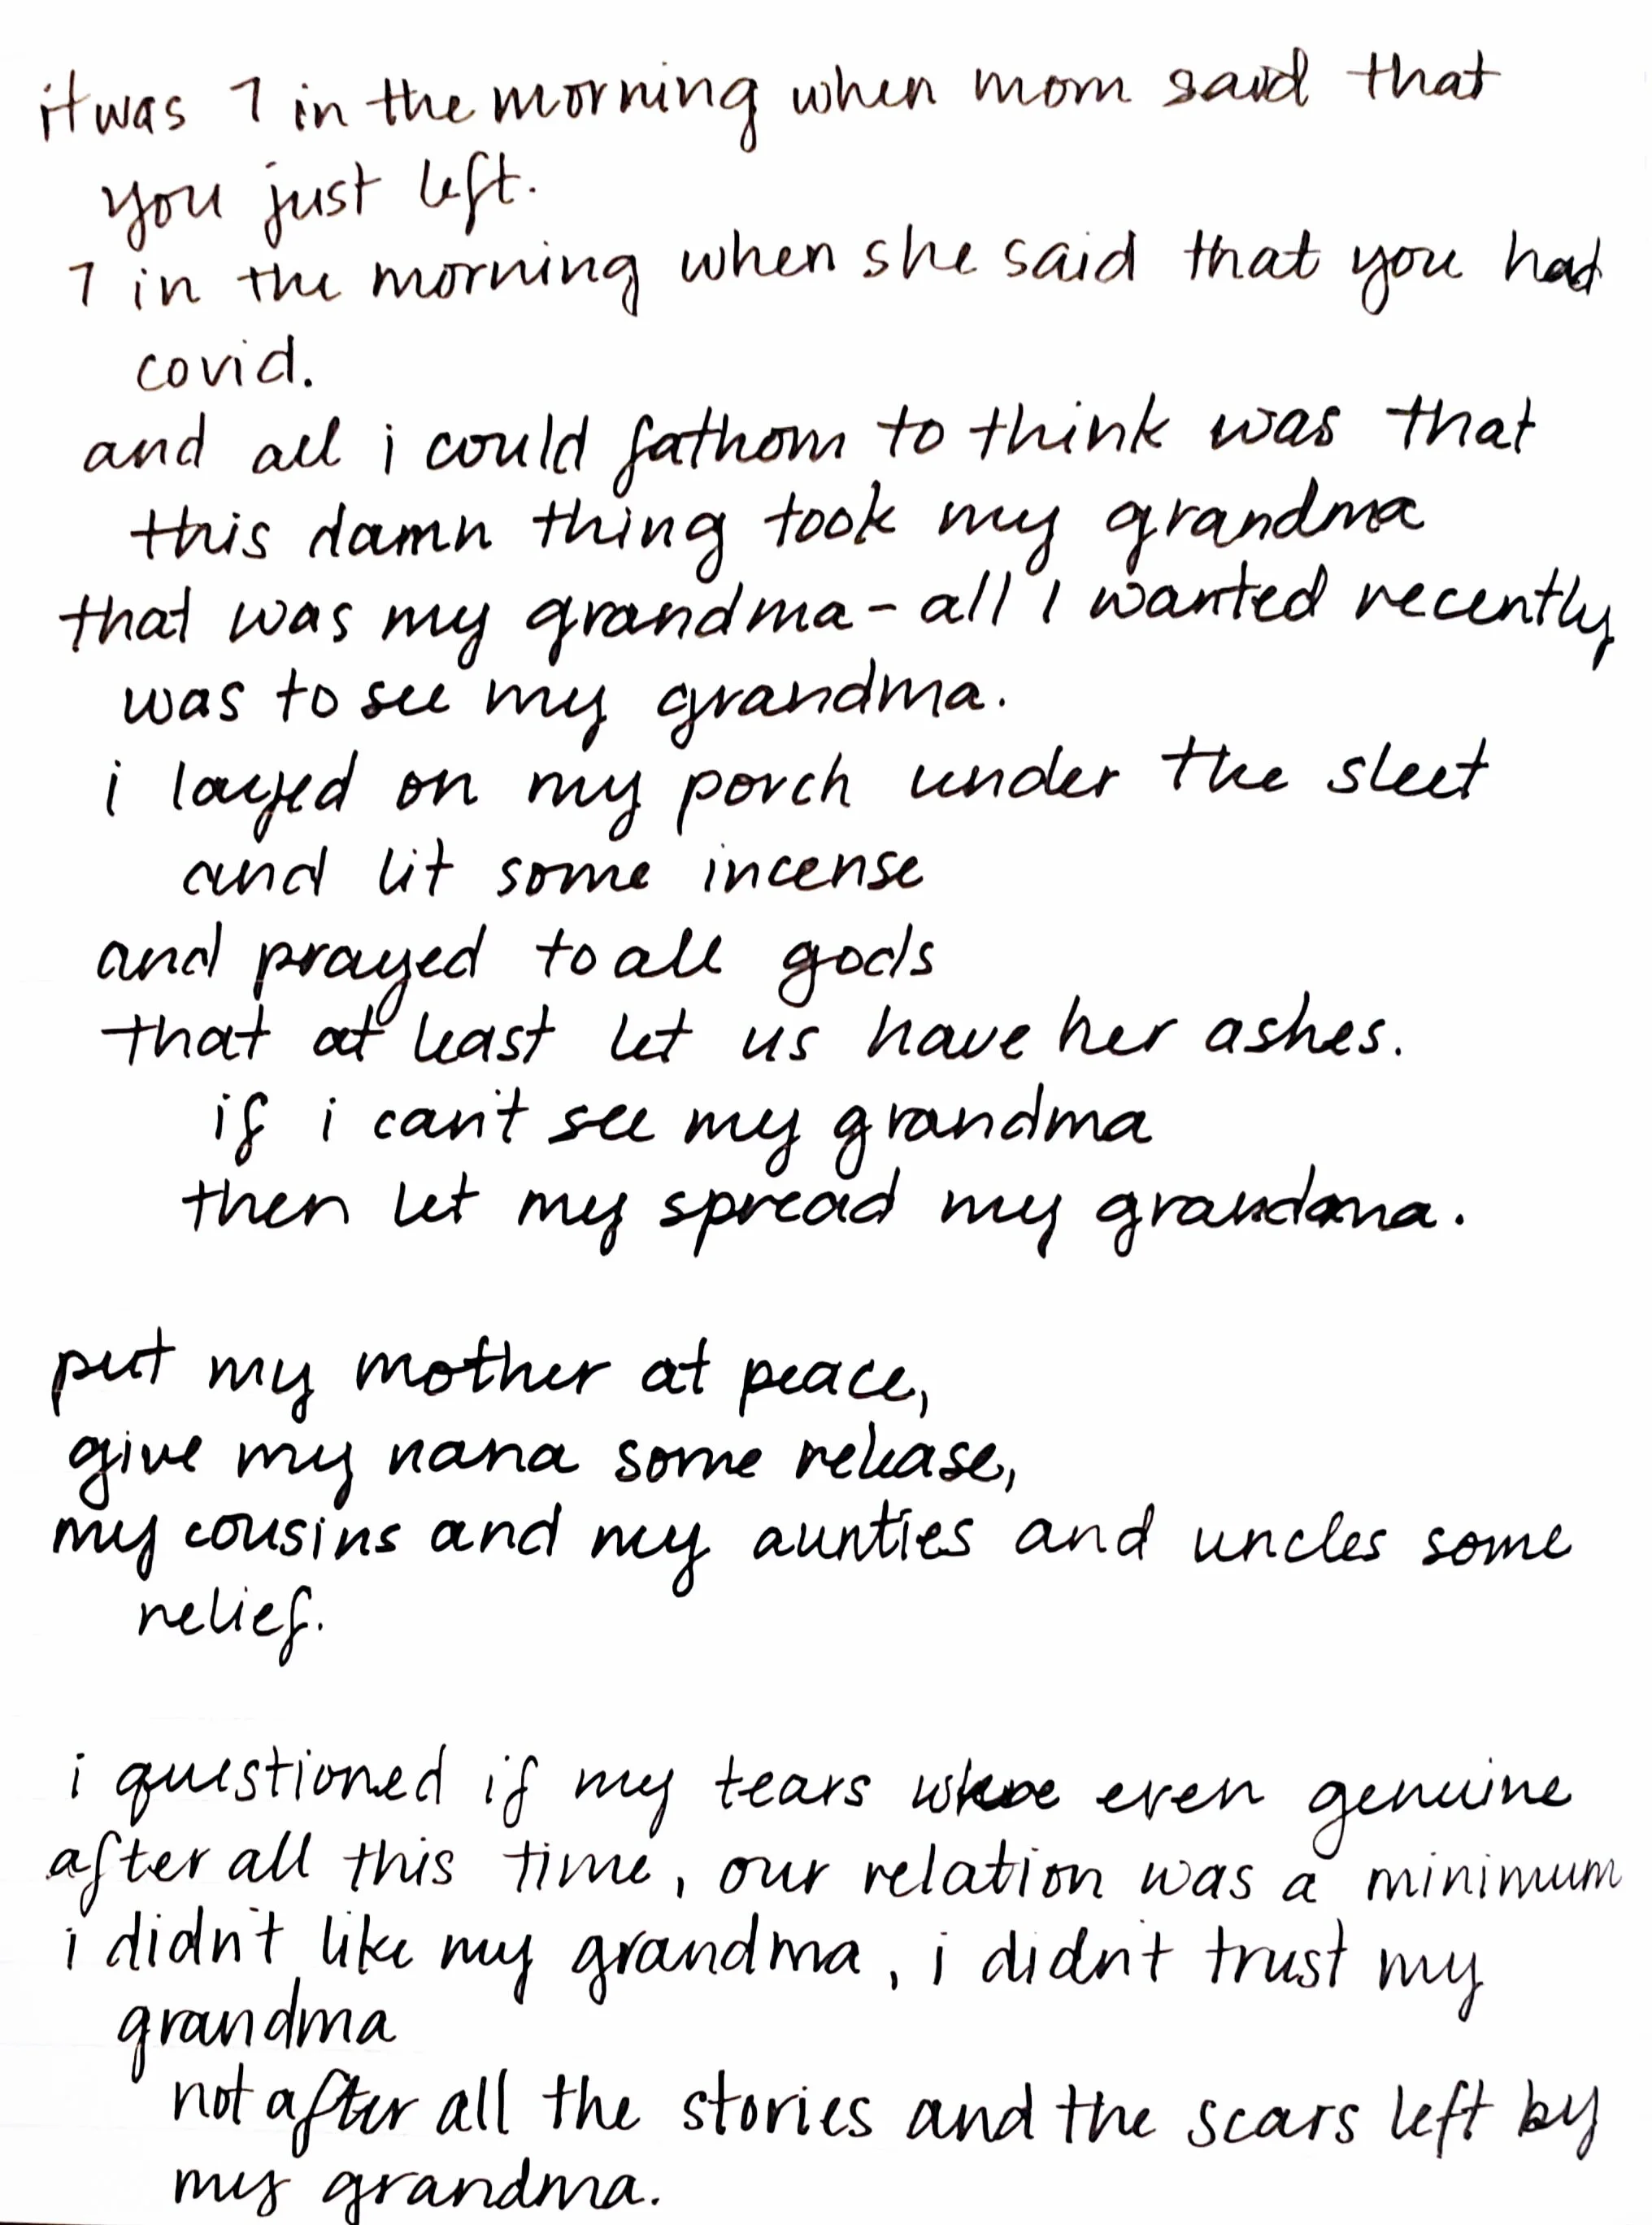 it was 1 in the morning when mom said that
you just left.
1 in the morning when she said that you had
covid.
and all i could fathom to think was that
this damn thing took my grandma
that was my grandma - all I wanted recently
was to see my grandma.
i layed on my porch under the sleet
and lit some incense
and prayed to all gods
that at least let us have her ashes.
if i can't see my grandma
then let my spread my grandma.
put my mother at peace,
give my nana some release,
my cousins and my aunties and uncles some
relief.
i questioned if my tears were even genuine
after all this time, our relation was a minimum
i didn't like my grandma, i didn't trust my
grandma
not after all the stories and the scars left by
my grandma.